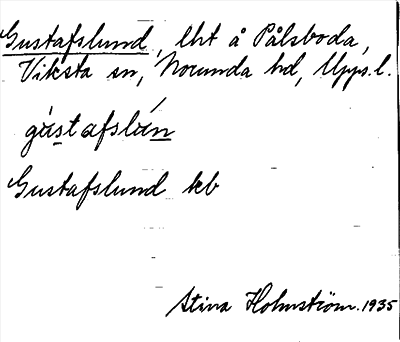 Gustafslund, lht å Pålsboda,
Viksta sn, Norunda hd, Upps. l.
gùstafslún
Gustafslund kb
Stina Holmström. 1935